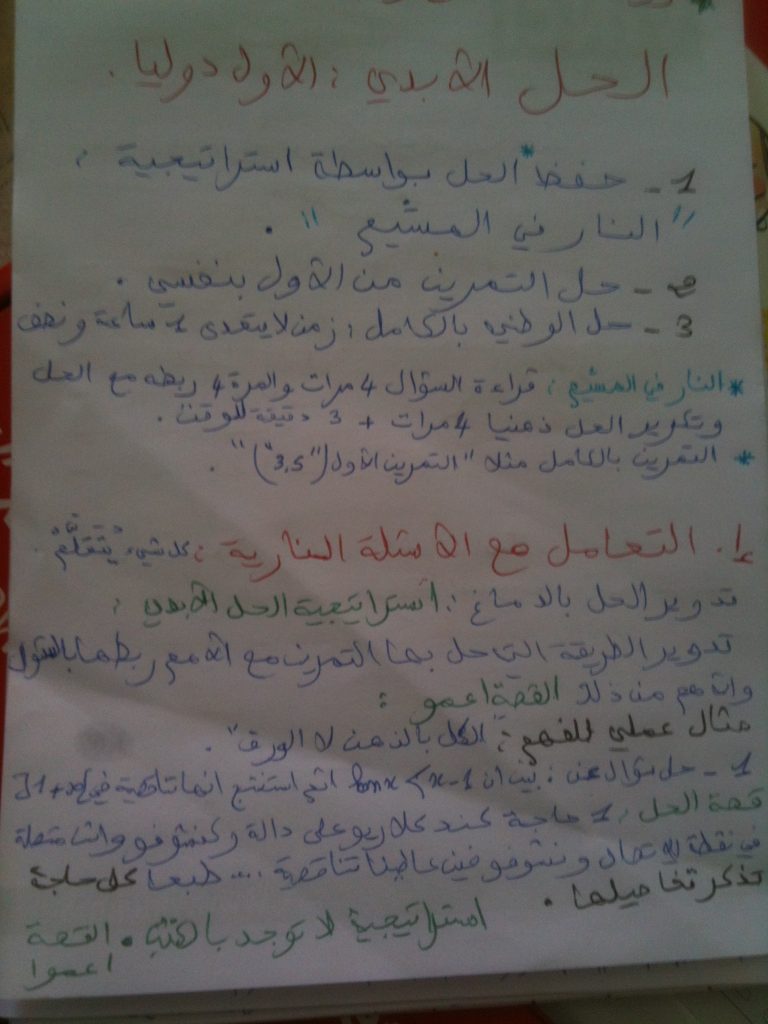 الحل الأبدي : الأول دوليا .
1 - حفظ* الحل بواسطة استراتيجية :
" النار في المشيع " .
2 - حل التمرين من الأول بنفسي .
3 - حل الوطني بالكامل : زمن لا يتعدى 1 ساعة ونصف
* النار في المشيع : قراءة السؤال 4 مرات والمرة 4 ربطه مع الحل
وتكرير الحل ذهنيا 4 مرات + 3 دقيقة للوقت .
* التمرين بالكامل مثلا "التمرين الأول ("3,5")" .
إ. التعامل مع الأسئلة النارية : كل شيء يُتَعَلَّمُ .
تدوير الحل بالدماغ : استراتيجية الحل الأبدي :
تدوير الطريقة التي حل بها التمرين مع الأم مع ربطها بالسؤول
والأهم من ذلك القصة اعمو :
مثال عملي للفهم : "الحل بالذهن لا الورق" .
1 - حل سؤال عن : بين أن ln x < x-1 استنتج انها تناقصية في
قصة الحل : 1 حاجة كندكلاريو على دالة وكنشوفو واش متصلة
في نقطة ونشوفو فين تناقصة .... طبعا كل حاجة
تذكر تفاصيلها .
استراتيجية لا توجد بالكتب . القصة
اعموا